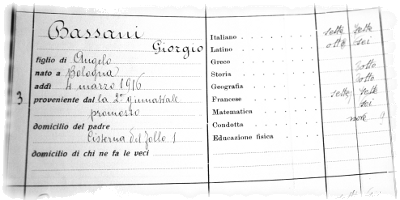 Bassani
Giorgio
figlio di Angelo
nato a Bologna
addì 4 marzo 1916
3 proveniente dal la 2ª ginnasiale
promosso
domicilio del padre
Cisterna del Follo 1
domicilio di chi ne fa le veci
Italiano sette sette
Latino otto sei
Greco
Storia sette
Geografia sette
Francese sette sette
Matematica sei
Condotta nove
Educazione fisica